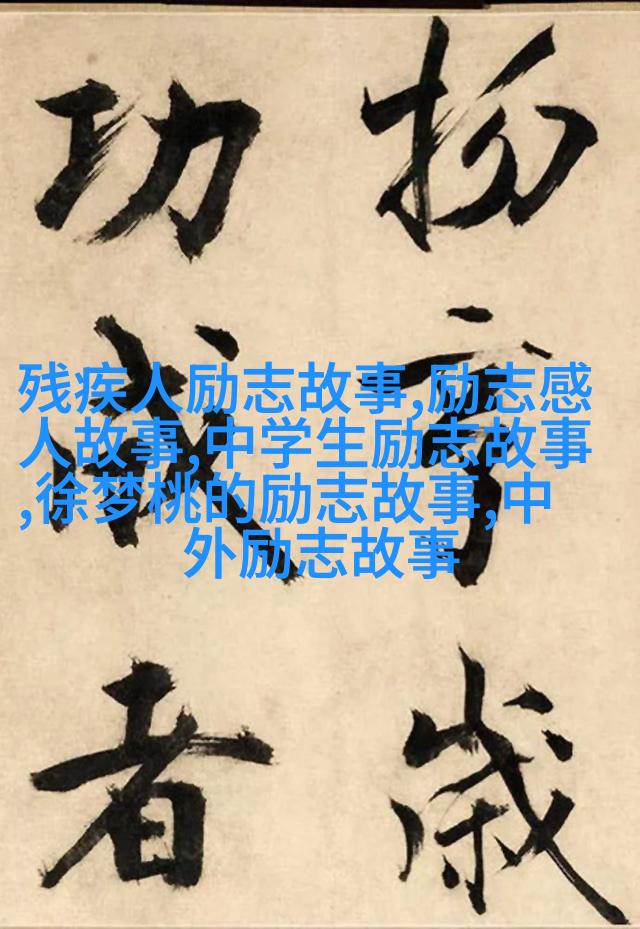 残疾人励志故事,励志感
人故事,中学生励志故事
,徐梦桃的励志故事,中
外励志故事
亨歲
功成者